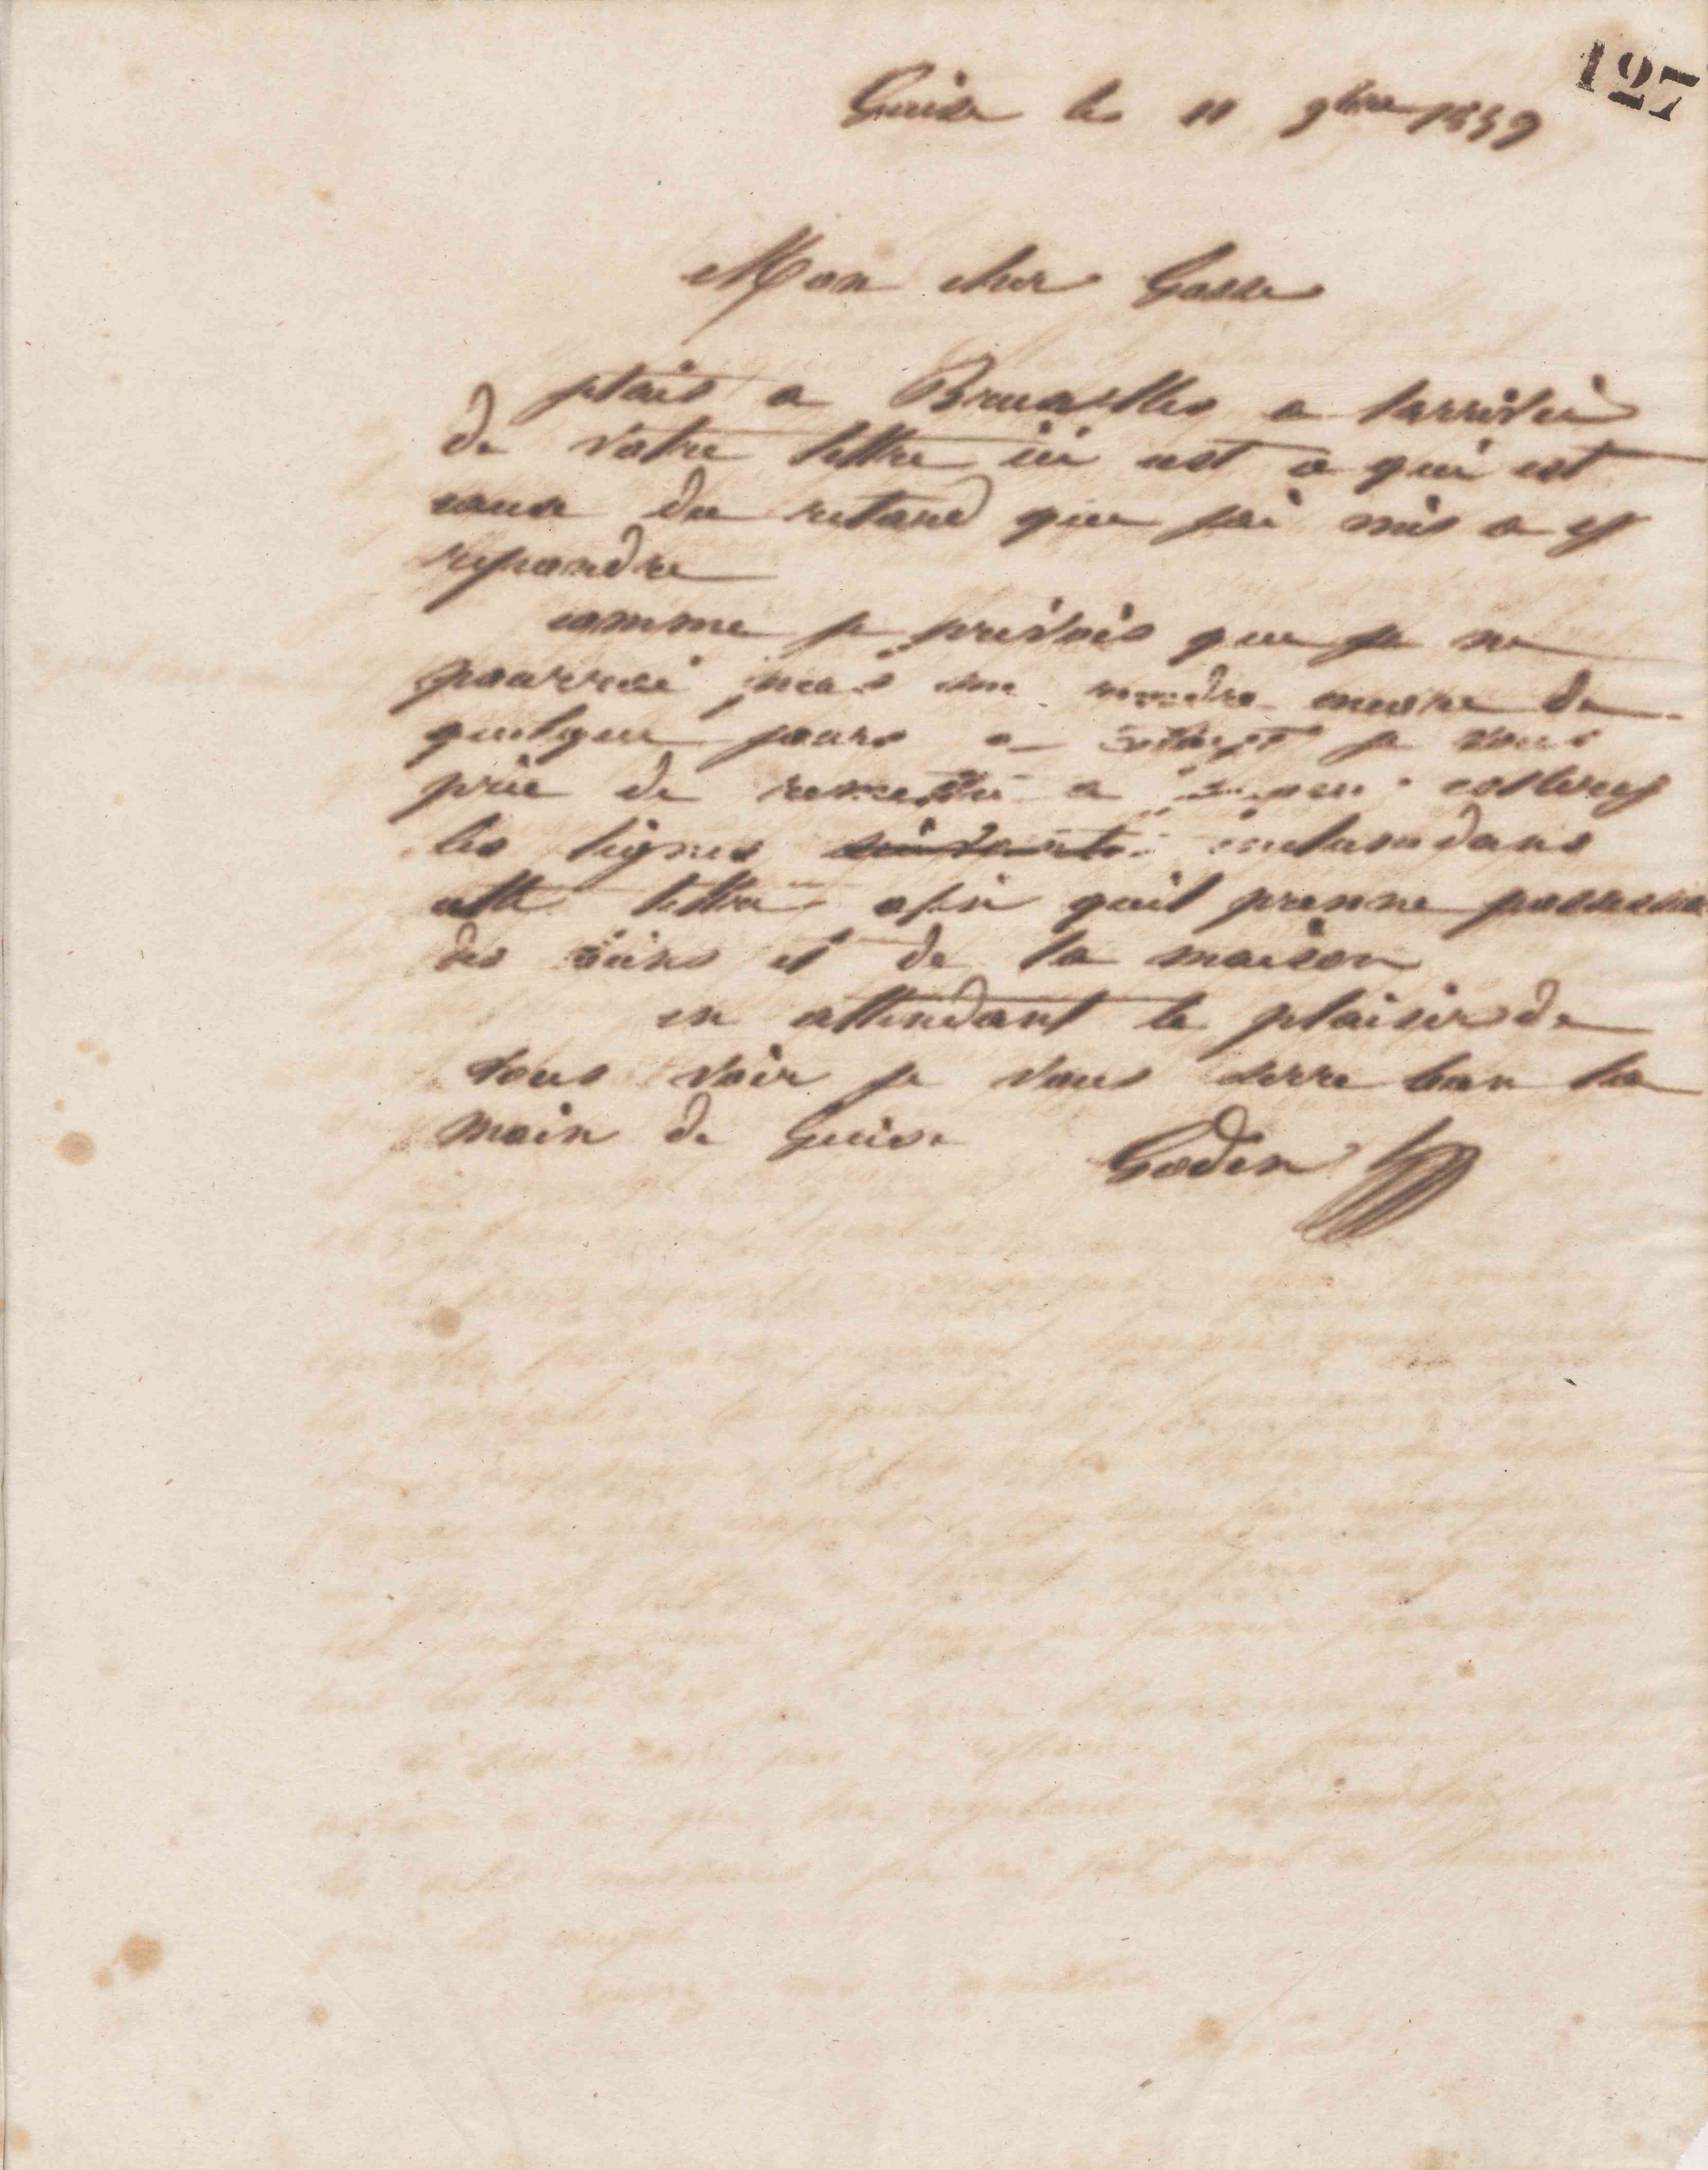 127
Guise le 11 9bre 1859
Mon cher Gosse
jetais a Bruxelles a larrivée
de votre lettre ici cest ce qui est
cause du retard que jai mis a y
repondre
comme je prevois que je ne
pourrai pas me rendre encore de
quelques jours a je vous
prie de remettre a
les lignes suivantes incluse dans
cette lettre afin quil prenne possession
des et de la maison
en attendant le plaisir de
vous voir je vous serre bien la
main de Guise
Godin